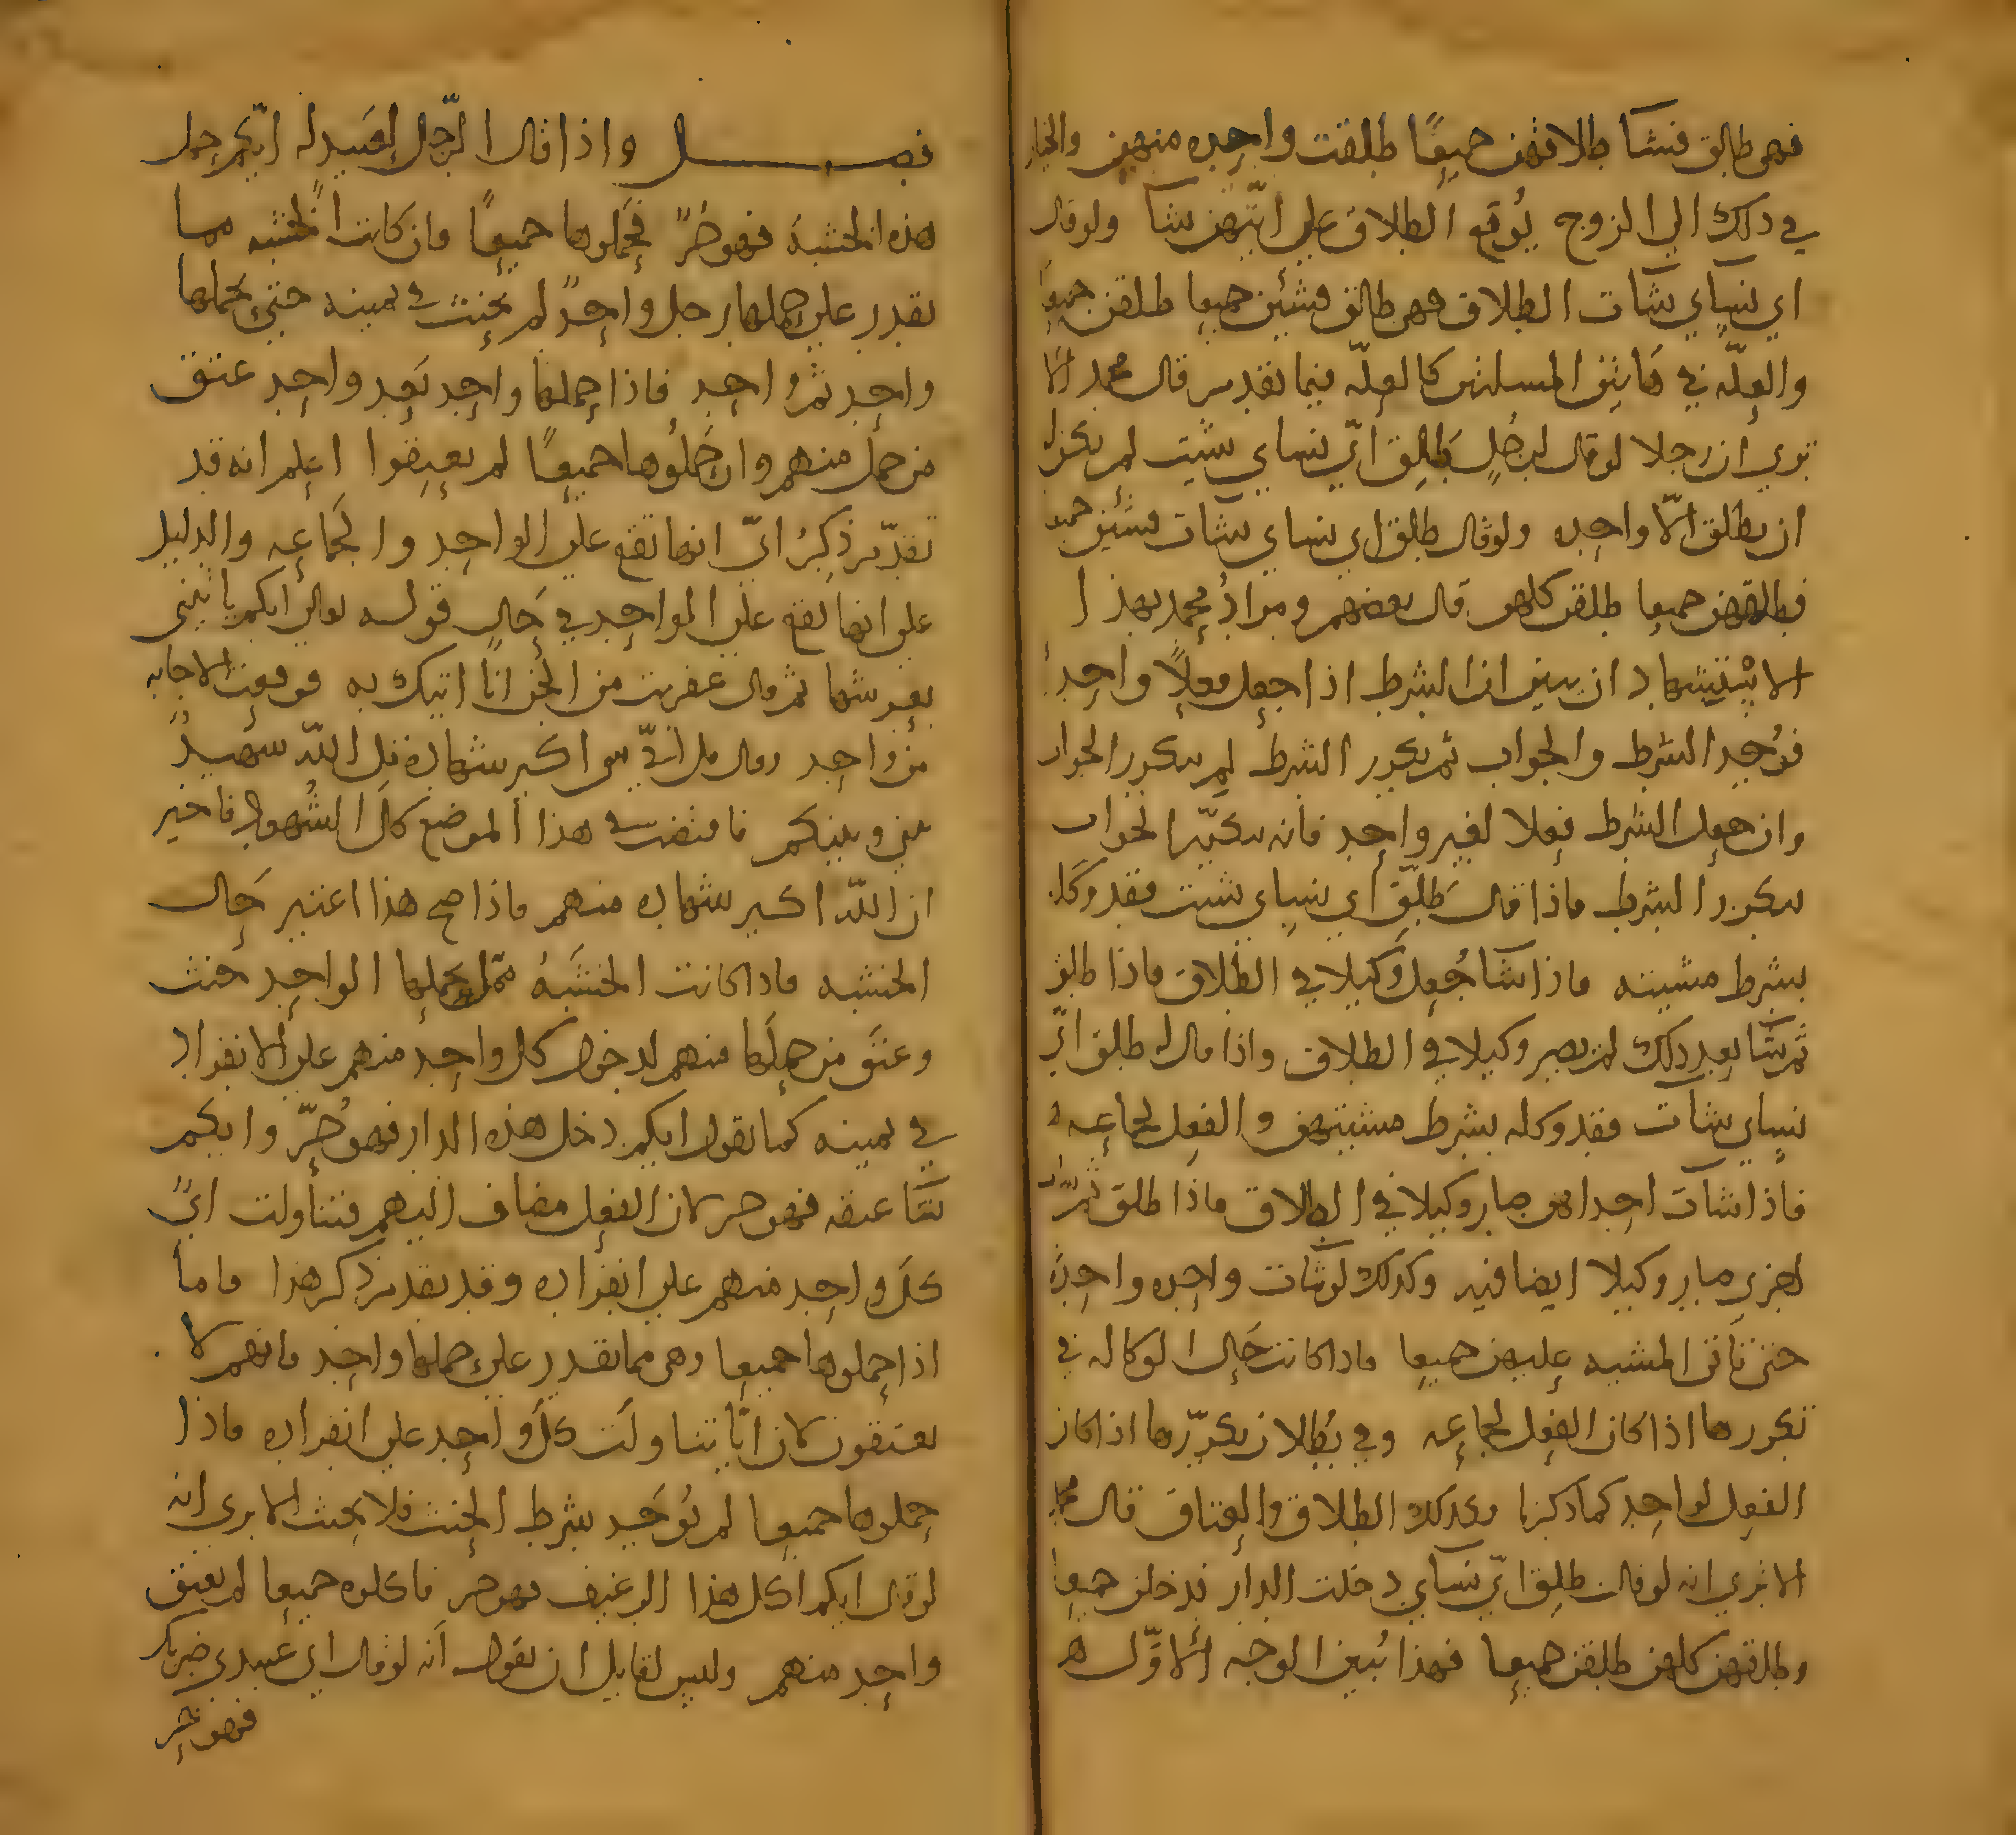 فهي طالق فشا طلاقهن جميعًا طلقت واحده منهن والخيار
في ذلك الي الزوج يُوقع الطلاق علي ايّتهن شا ولو قال
اي نساي شات الطلاق فهي طالق فشئن جميعا طلقن جميعا
والعلّه في هاتين المسلتين كالعلّه فيما تقدم قال محمد الا
تري ان رجلا لو قال لرجُلٍ طَلِّق ايّ نساي شيت لم يكن له
ان يطلق الّا واحده ولو قال طلق اي نساي شات فشئن جميعا
فطلقهن جميعا طلقن كلهن قال بعضهم ومرادُ محمد بهذا
الاستشهاد ان يبين ان الشرط اذا جعل فعلًا واحدا
فوُجد الشرط والجواب ثم تكرر الشرط لم يتكرر الجواب
وان جعل الشرط فعلا لغير واحد فانه يتكرّر الجواب
بتكرر الشرط فاذا قال طَلِّق اي نساي شيت فقد وكله
بشرط مشيته فاذا شا جُعل وكيلا في الطلاق فاذا طلق
ثم شا بعد ذلك لم يصر وكيلا في الطلاق واذا قال له طلق ايّ
نساي شات فقد وكله بشرط مشيتهن والفعل لجماعه
فاذا شات احداهن صار وكيلا في الطلاق فاذا طلق ثم شات
اخري صار وكيلا ايضا فيه وكذلك لو شات واحده واحدة
حتى تاتي المشيه عليهن جميعا فاذا كانت حَال الوكاله في
تكررها اذا كان الفعل لجماعه وفي بُطلان تكرّرها اذا كان
الفعل لواحد كما ذكرنا وكذلك الطلاق والعتاق قال محمد
الا تري انه لو قال طلق ايّ نساي دخلت الدار فدخلن جميعا
وطلقهن كلهن طلقن جميعا فهذا يُبين الوجه الاوّل ه
فصل واذا قال الرّجل لعَبيد له ايّكم حمل
هذه الخشبة فهو حُرٌ فحَملوها جميعًا فان كانت الخشبه مما
يقدر علي حملها رجل واحدٌ لم يحنث في يمينه حتى يحملها
واحد ثم واحد فاذا حملها واحد بَعد واحد عتق
من حمل منهم وان حَملُوها جميعًا لم يعتقوا اعلم انه قد
تقدّم ذِكرُ ايّ انها تقع علي الواحد والجَماعه والدليل
علي انها تقع علي الواحد في حَال قوله تعالي ايكم ياتيني
بعرشها ثم قال عفريت من الجن انا اتيك به فوقعت الاجابه
من واحد وقال قل ايّ شي اكبر شهادة قل اللّه شهيدٌ
بيني وبينكم فاقتضت في هذا الموضع كلّ الشُهود فاخبر
ان اللّه اكبر شهاده منهم فاذا صح هذا اعتبر حَال
الخشبه فاذا كانت الخشَبَهُ ممّا يحملها الواحد حنث
وعتق من حملها منهم لدخول كل واحد منهم علي الانفراد
في يمينه كما تقول ايكم دخل هذه الدار فهو حُرّ وايكم
شا عتقه فهو حر لان الفعل مضاف اليهم فتناولت ايّ
كلّ واحد منهم علي انفراده وقد تقدم ذكر هذا فاما
اذا حملوها جميعا وهي مما تقدر علي حملها واحد فانهم لا
يعتقون لان ايّا يتناولت كلّ واحد علي انفراده فاذا
حملوها جميعا لم يُوجَد شرط الحِنث فلا يحنث الا تري انه
لو قال ايكم اكل هذا الرغيف فهو حر فاكلوه جميعا لم يعتق
واحد منهم وليس لقايل ان يقول انه لو قال اي عبيدي ضربك
فهو حر